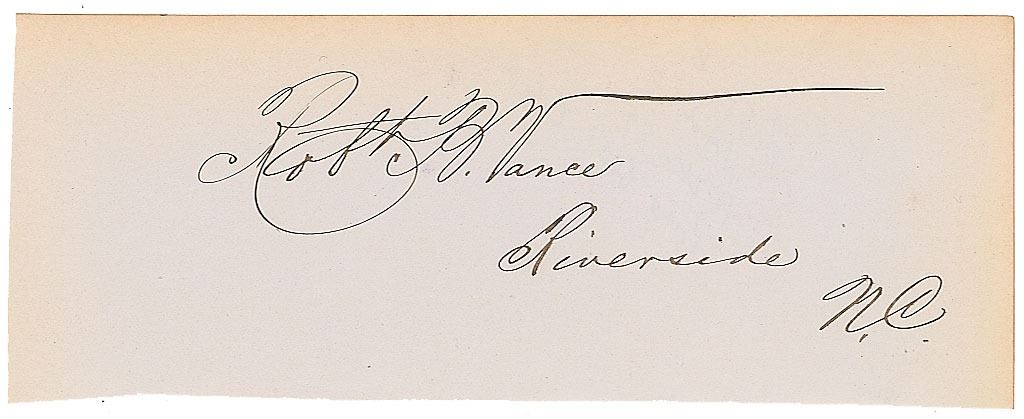 Robt. B. Vance
Riverside
N.C.